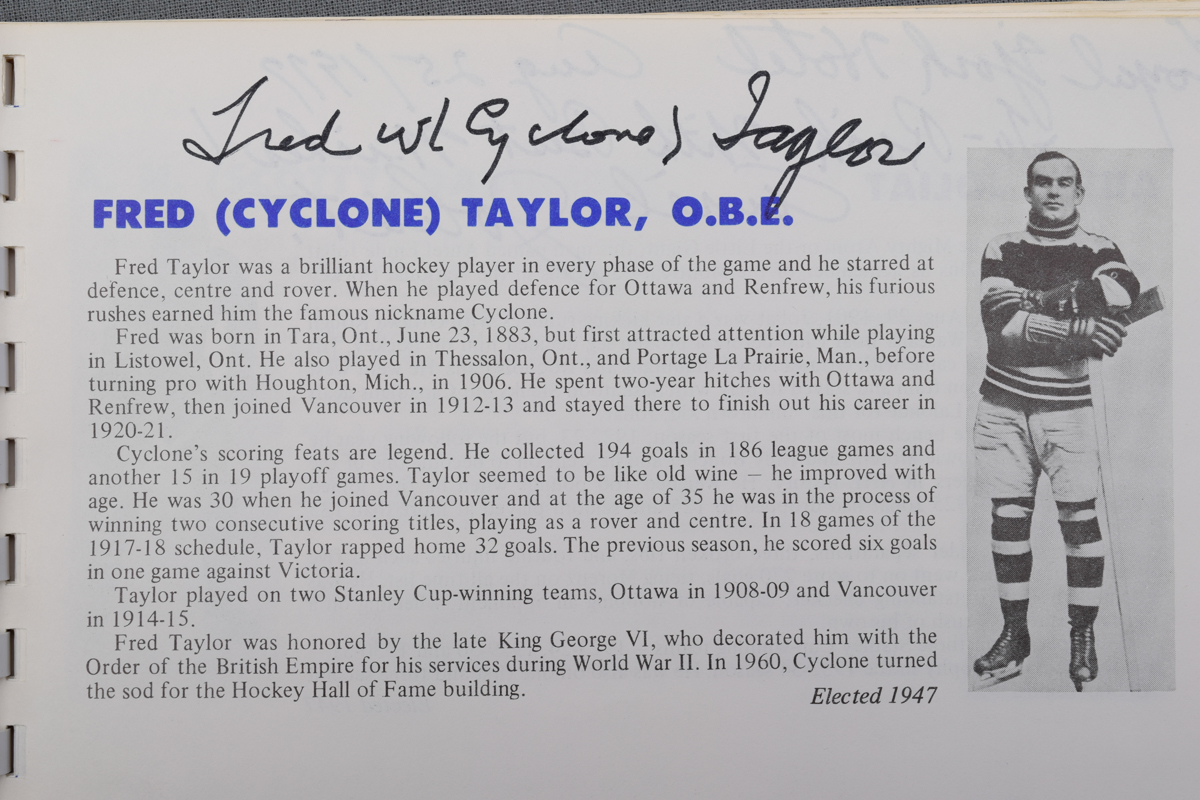 Fred W (Cyclone) Taylor
FRED (CYCLONE) TAYLOR, O.B.E.
Fred Taylor was a brilliant hockey player in every phase of the game and he starred at
defence, centre and rover. When he played defence for Ottawa and Renfrew, his furious
rushes earned him the famous nickname Cyclone.
Fred was born in Tara, Ont., June 23, 1883, but first attracted attention while playing
in Listowel, Ont. He also played in Thessalon, Ont., and Portage La Prairie, Man., before
turning pro with Houghton, Mich., in 1906. He spent two-year hitches with Ottawa and
Renfrew, then joined Vancouver in 1912-13 and stayed there to finish out his career in
1920-21.
Cyclone's scoring feats are legend. He collected 194 goals in 186 league games and
another 15 in 19 playoff games. Taylor seemed to be like old wine — he improved with
age. He was 30 when he joined Vancouver and at the age of 35 he was in the process of
winning two consecutive scoring titles, playing as a rover and centre. In 18 games of the
1917-18 schedule, Taylor rapped home 32 goals. The previous season, he scored six goals
in one game against Victoria.
Taylor played on two Stanley Cup-winning teams, Ottawa in 1908-09 and Vancouver
in 1914-15.
Fred Taylor was honored by the late King George VI, who decorated him with the
Order of the British Empire for his services during World War II. In 1960, Cyclone turned
the sod for the Hockey Hall of Fame building.
Elected 1947